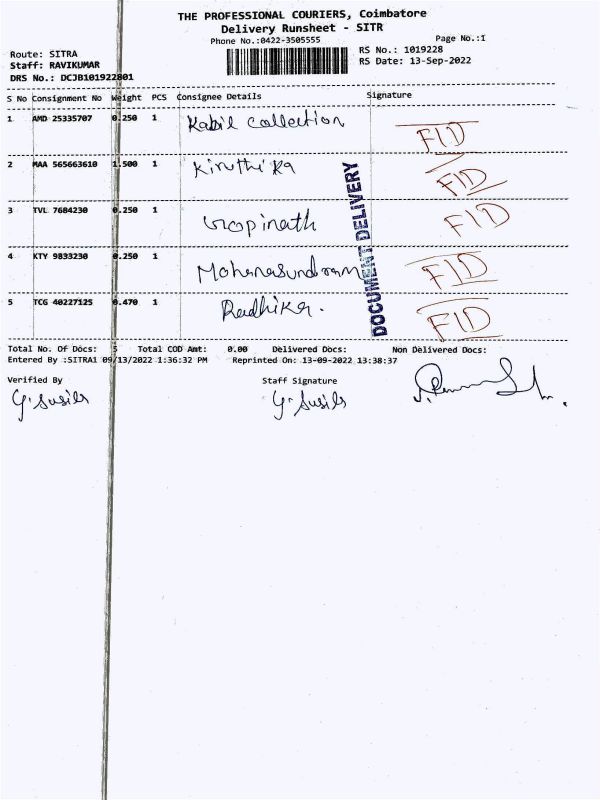 THE PROFESSIONAL COURIERS, Coimbatore
Delivery Runsheet - SITR
Phone No.:0422-3505555
Page No.:1
Route: SITRA
RS No.: 1019228
Staff: RAVIKUMAR
RS Date: 13-Sep-2022
DRS No.: DCJB101922801
S No Consignment No Weight PCS Consignee Details Signature
1 AMD 25335707 0.250 1 Kabil collection FID
2 MAA 565663610 1.500 1 Kiruthika FID
3 TVL 7684230 0.250 1 Gopinath FID
4 KTY 9833230 0.250 1 Mohanasundram FID
5 TCG 40227125 0.470 1 Radhika. FID
DOCUMENT DELIVERY
Total No. Of Docs: 5 Total COD Amt: 0.00 Delivered Docs: Non Delivered Docs:
Entered By :SITRA1 09/13/2022 1:36:32 PM Reprinted On: 13-09-2022 13:38:37
Verified By Staff Signature